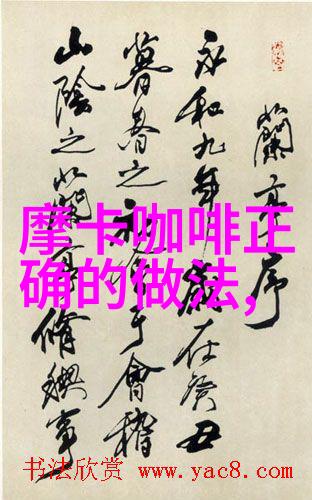 蘭亭序
永和九年歲在癸丑
暮春之初會于會稽
山陰之蘭亭脩禊事
摩卡咖啡正
确的做法,
书法欣赏 www.yac8.com